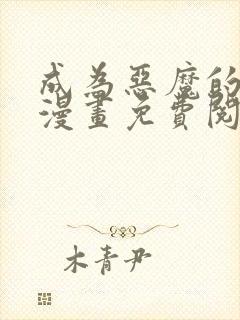 成為惡魔的
漫畫免費閱
木青尹